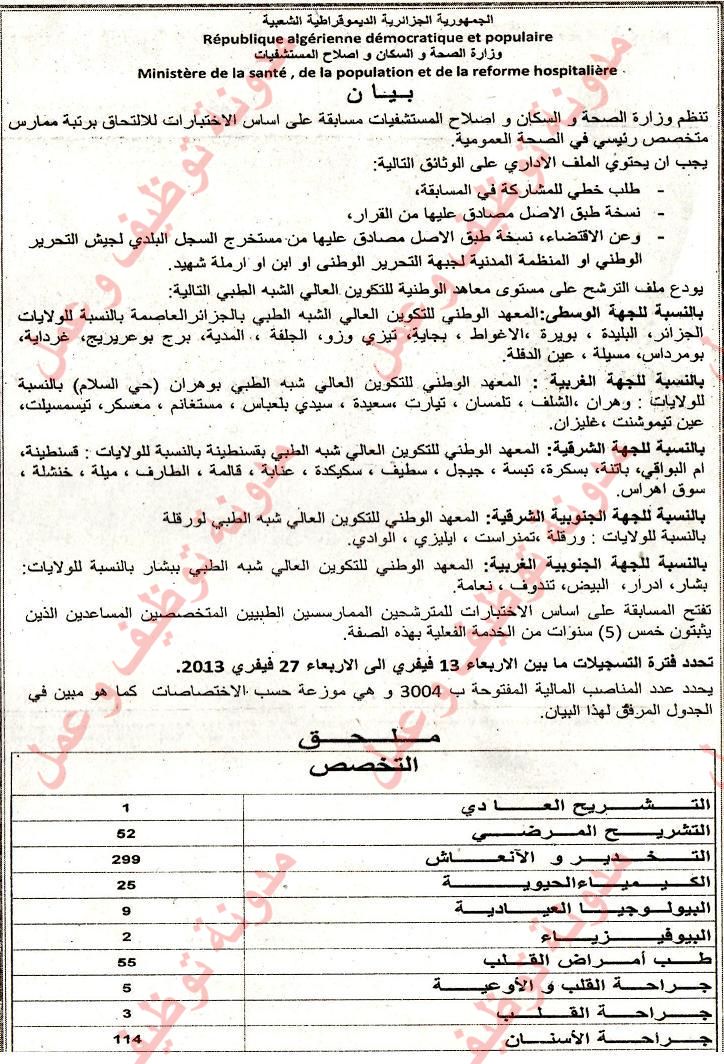 الجمهورية الجزائرية الديموقراطية الشعبية
République algérienne démocratique et populaire
وزارة الصحة و السكان و اصلاح المستشفيات
Ministère de la santé , de la population et de la reforme hospitalière
بـيـــان
تنظم وزارة الصحة و السكان و اصلاح المستشفيات مسابقة على اساس الاختبارات للالتحاق برتبة ممارس
متخصص رئيسي في الصحة العمومية.
يجب ان يحتوي الملف الاداري على الوثائق التالية:
- طلب خطي للمشاركة في المسابقة،
- نسخة طبق الاصل مصادق عليها من القرار،
- وعن الاقتضاء، نسخة طبق الاصل مصادق عليها من مستخرج السجل البلدي لجيش التحرير
الوطني او المنظمة المدنية لجبهة التحرير الوطنى او ابن او ارملة شهيد.
يودع ملف الترشح على مستوى معاهد الوطنية للتكوين العالي الشبه الطبي التالية:
بالنسبة للجهة الوسطى:المعهد الوطني للتكوين العالي الشبه الطبي بالجزائرالعاصمة بالنسبة للولايات
الجزائر، البليدة ، بويرة ،الاغواط ، بجاية، تيزي وزو، الجلفة ، المدية، برج بوعريريج، غرداية،
بومرداس، مسيلة ، عين الدفلة.
بالنسبة للجهة الغربية : المعهد الوطني للتكوين العالي شبه الطبي بوهران (حي السلام) بالنسبة
للولايات : وهران ،الشلف ، تلمسان ، تيارت ،سعيدة ، سيدي بلعباس ، مستغانم ، معسكر، تيسمسيلت،
عين تيموشنت ،غليزان.
بالنسبة للجهة الشرقية: المعهد الوطني للتكوين العالي شبه الطبي بقسنطينة بالنسبة للولايات : قسنطينة،
ام البواقي، باتنة، بسكرة، تبسة ، جيجل ، سطيف ، سكيكدة ، عنابة ، قالمة ، الطارف ، ميلة ، خنشلة ،
سوق اهراس.
بالنسبة للجهة الجنوبية الشرقية: المعهد الوطني للتكوين العالي شبه الطبي لورقلة
بالنسبة للولايات : ورقلة ،تمنراست ، ايليزي ، الوادي.
بالنسبة للجهة الجنوبية الغربية: المعهد الوطني للتكوين العالي شبه الطبي ببشار بالنسبة للولايات:
بشار، ادرار، البيض، تندوف ، نعامة.
تفتح المسابقة على اساس الاختبارات للمترشحين الممارسسين الطبيين المتخصصين المساعدين الذين
يثبتون خمس (5) سنوات من الخدمة الفعلية بهذه الصفة.
تحدد فترة التسجيلات ما بين الاربعاء 13 فيفري الى الاربعاء 27 فيفري 2013.
يحدد عدد المناصب المالية المفتوحة ب 3004 و هي موزعة حسب الاختصاصات كما هو مبين في
الجدول المرفق لهذا البيان.
ملحق
التخصص
التشريح العادي 1
التشريح المرضي 52
التخدير و الآنعاش 299
الكيمياءالحيوية 25
البيولوجيا العيادية 9
البيوفيزياء 2
طب أمراض القلب 55
جراحة القلب و الأوعية 5
جراحة القلب 3
جراحة الأسنان 114
مدونة توظيف وعمل
مدونة توظيف وعمل
مدونة توظيف وعمل
مدونة توظيف وعمل
مدونة توظيف
مدونة توظيف